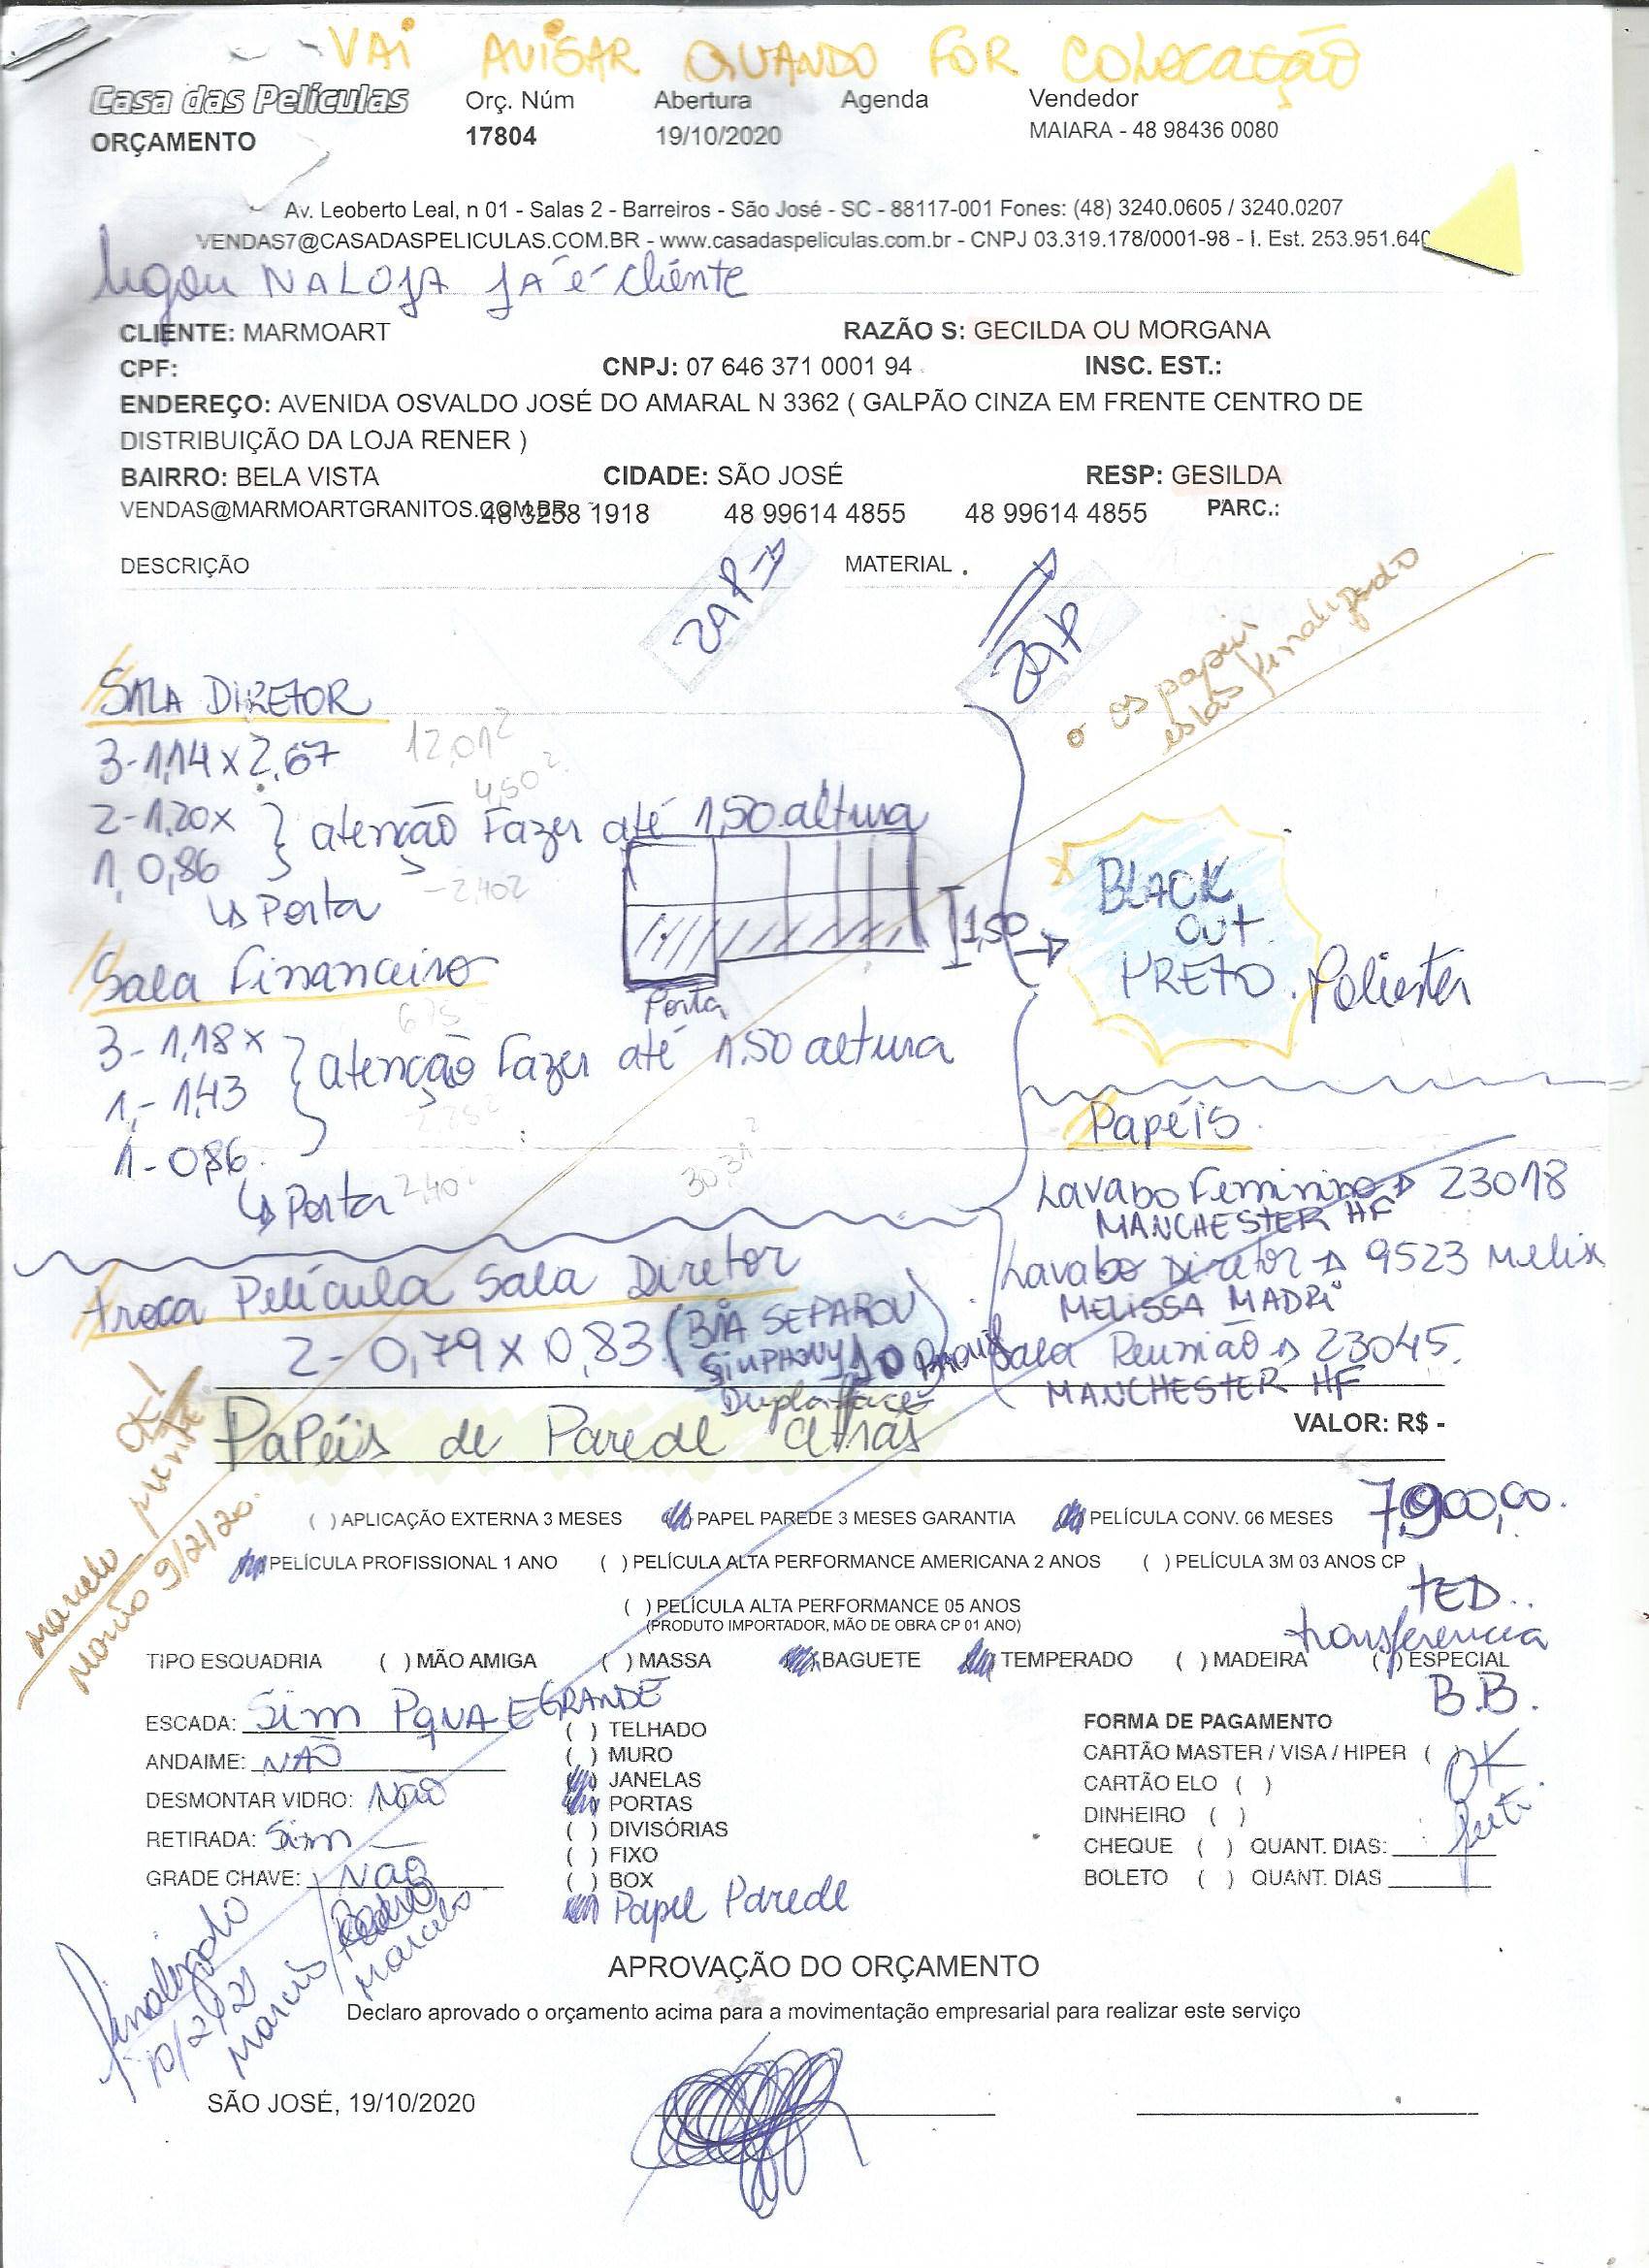 VAI AVISAR QUANDO FOR COLOCAÇÃO
Casa das Películas
ORÇAMENTO
Orç. Núm
17804
Abertura
19/10/2020
Agenda
Vendedor
MAIARA - 48 98436 0080
Av. Leoberto Leal, n 01 - Salas 2 - Barreiros - São José - SC - 88117-001 Fones: (48) 3240.0605 / 3240.0207
VENDAS7@CASADASPELICULAS.COM.BR - www.casadaspeliculas.com.br - CNPJ 03.319.178/0001-98 - I. Est. 253.951.640
ligou NA LOJA JÁ é cliente
CLIENTE: MARMOART RAZÃO S: GECILDA OU MORGANA
CPF: CNPJ: 07 646 371 0001 94 INSC. EST.:
ENDEREÇO: AVENIDA OSVALDO JOSÉ DO AMARAL N 3362 ( GALPÃO CINZA EM FRENTE CENTRO DE
DISTRIBUIÇÃO DA LOJA RENER )
BAIRRO: BELA VISTA CIDADE: SÃO JOSÉ RESP: GESILDA
VENDAS@MARMOARTGRANITOS.COM.BR 48 3258 1918 48 99614 4855 48 99614 4855 PARC.:
DESCRIÇÃO MATERIAL
ZAP
ZAP
os papeis
estás finalizado
SALA DIRETOR
3-1,14 x 2,67 12,01²
4,50²
2-1,20x
1, 0,86 atenção Fazer até 1,50 altura
2,40²
Porta
1,50
Porta
BLACK
OUT
PRETO. Poliester
Sala Financeiro
6,75
3-1,18 x
1,-1,43 atenção Fazer até 1,50 altura
2,25²
1-0,86
Porta 2,40² 30,31²
Papéis
Lavabo Feminino 23018
MANCHESTER HF
Lavabo Diretor 9523 Melix
MELISSA MADRI
Sala Reunião 23045.
MANCHESTER HF
troca Película Sala Diretor
2- 0,79 x 0,83 (BIA SEPAROU
SINPHONY 10
Dupla face
Papéis de Parede atrás
VALOR: R$ -
7.900,00.
OK!
Marcelo
9/2/20.
( ) APLICAÇÃO EXTERNA 3 MESES PAPEL PAREDE 3 MESES GARANTIA PELÍCULA CONV. 06 MESES
PELÍCULA PROFISSIONAL 1 ANO ( ) PELÍCULA ALTA PERFORMANCE AMERICANA 2 ANOS ( ) PELÍCULA 3M 03 ANOS CP
( ) PELÍCULA ALTA PERFORMANCE 05 ANOS
(PRODUTO IMPORTADOR, MÃO DE OBRA CP 01 ANO)
TED..
transferencia
B.B.
TIPO ESQUADRIA ( ) MÃO AMIGA ( ) MASSA BAGUETE TEMPERADO ( ) MADEIRA ( ) ESPECIAL
ESCADA: Sim PQNA E GRANDE
ANDAIME: NÃO
DESMONTAR VIDRO: Não
RETIRADA: Sim
GRADE CHAVE: Não
( ) TELHADO
( ) MURO
JANELAS
PORTAS
( ) DIVISÓRIAS
( ) FIXO
( ) BOX
Papel Parede
FORMA DE PAGAMENTO
CARTÃO MASTER / VISA / HIPER ( )
CARTÃO ELO ( )
DINHEIRO ( )
CHEQUE ( ) QUANT. DIAS:
BOLETO ( ) QUANT. DIAS
OK
Finalizado
10/2/21
Marcelo
APROVAÇÃO DO ORÇAMENTO
Declaro aprovado o orçamento acima para a movimentação empresarial para realizar este serviço
SÃO JOSÉ, 19/10/2020